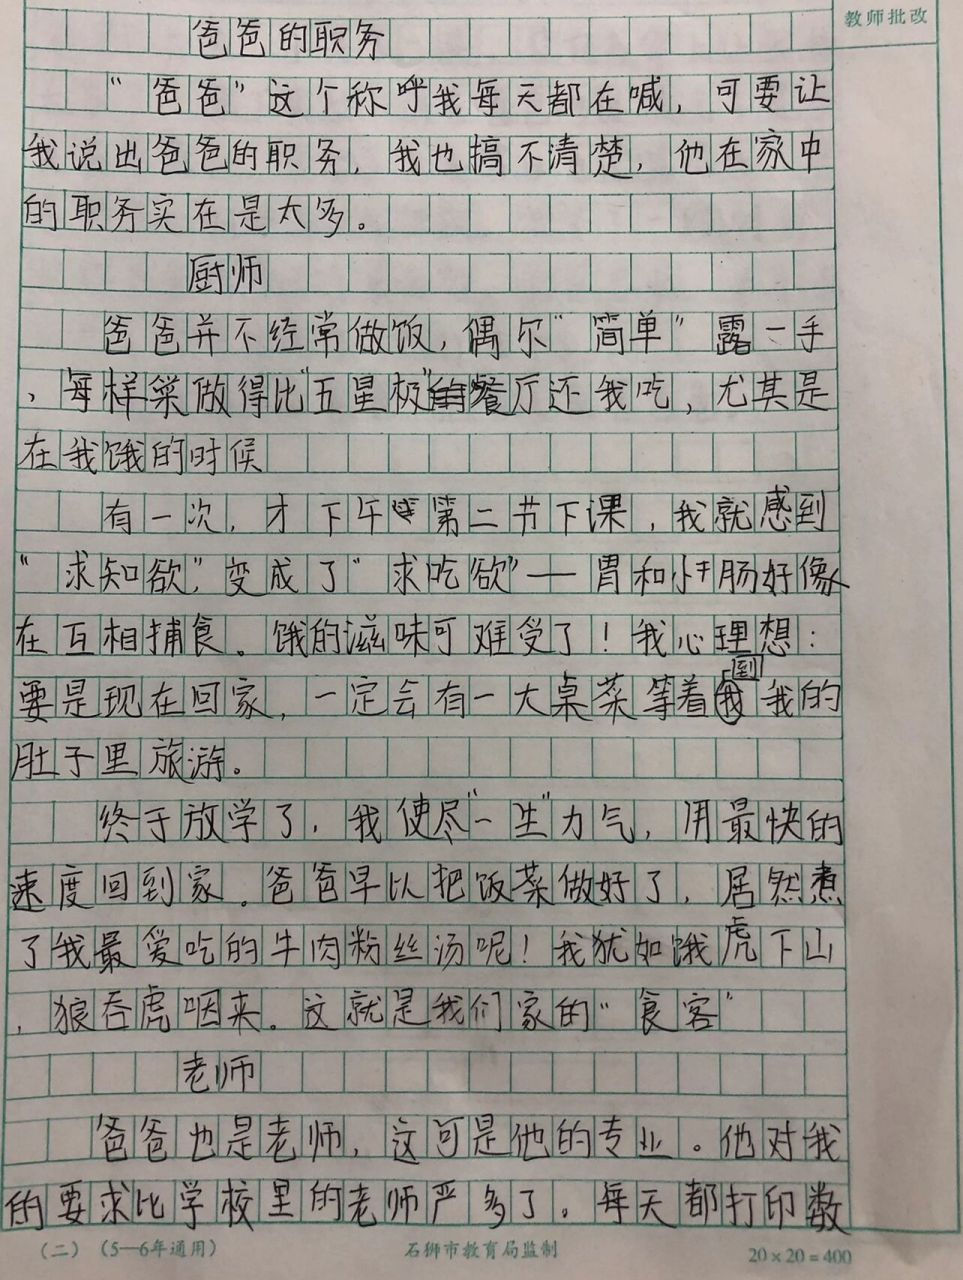 教师批改
爸爸的职务
“爸爸”这个称呼我每天都在喊，可要让
我说出爸爸的职务，我也搞不清楚，他在家中
的职务实在是太多。
厨师
爸爸并不经常做饭，偶尔“简单”露一手
，每样菜做得比“五星极”餐厅还我吃，尤其是
在我饿的时候
有一次，才下午第二节下课，我就感到
“求知欲”，变成了“求吃欲”——胃和小肠好像
在互相捕食。饿的滋味可难受了！我心理想：
要是现在回家，一定会有一大桌菜等着到我的
肚子里旅游。
终于放学了，我使尽“一生”力气，用最快的
速度回到家。爸爸早以把饭菜做好了，居然煮
了我最爱吃的牛肉粉丝汤呢！我犹如饿虎下山
，狼吞虎咽来。这就是我们家的“食客”
老师
爸爸也是老师，这可是他的专业。他对我
的要求比学校里的老师严多了。每天都打印数
（二）（5—6年通用）
石狮市教育局监制
20×20=400